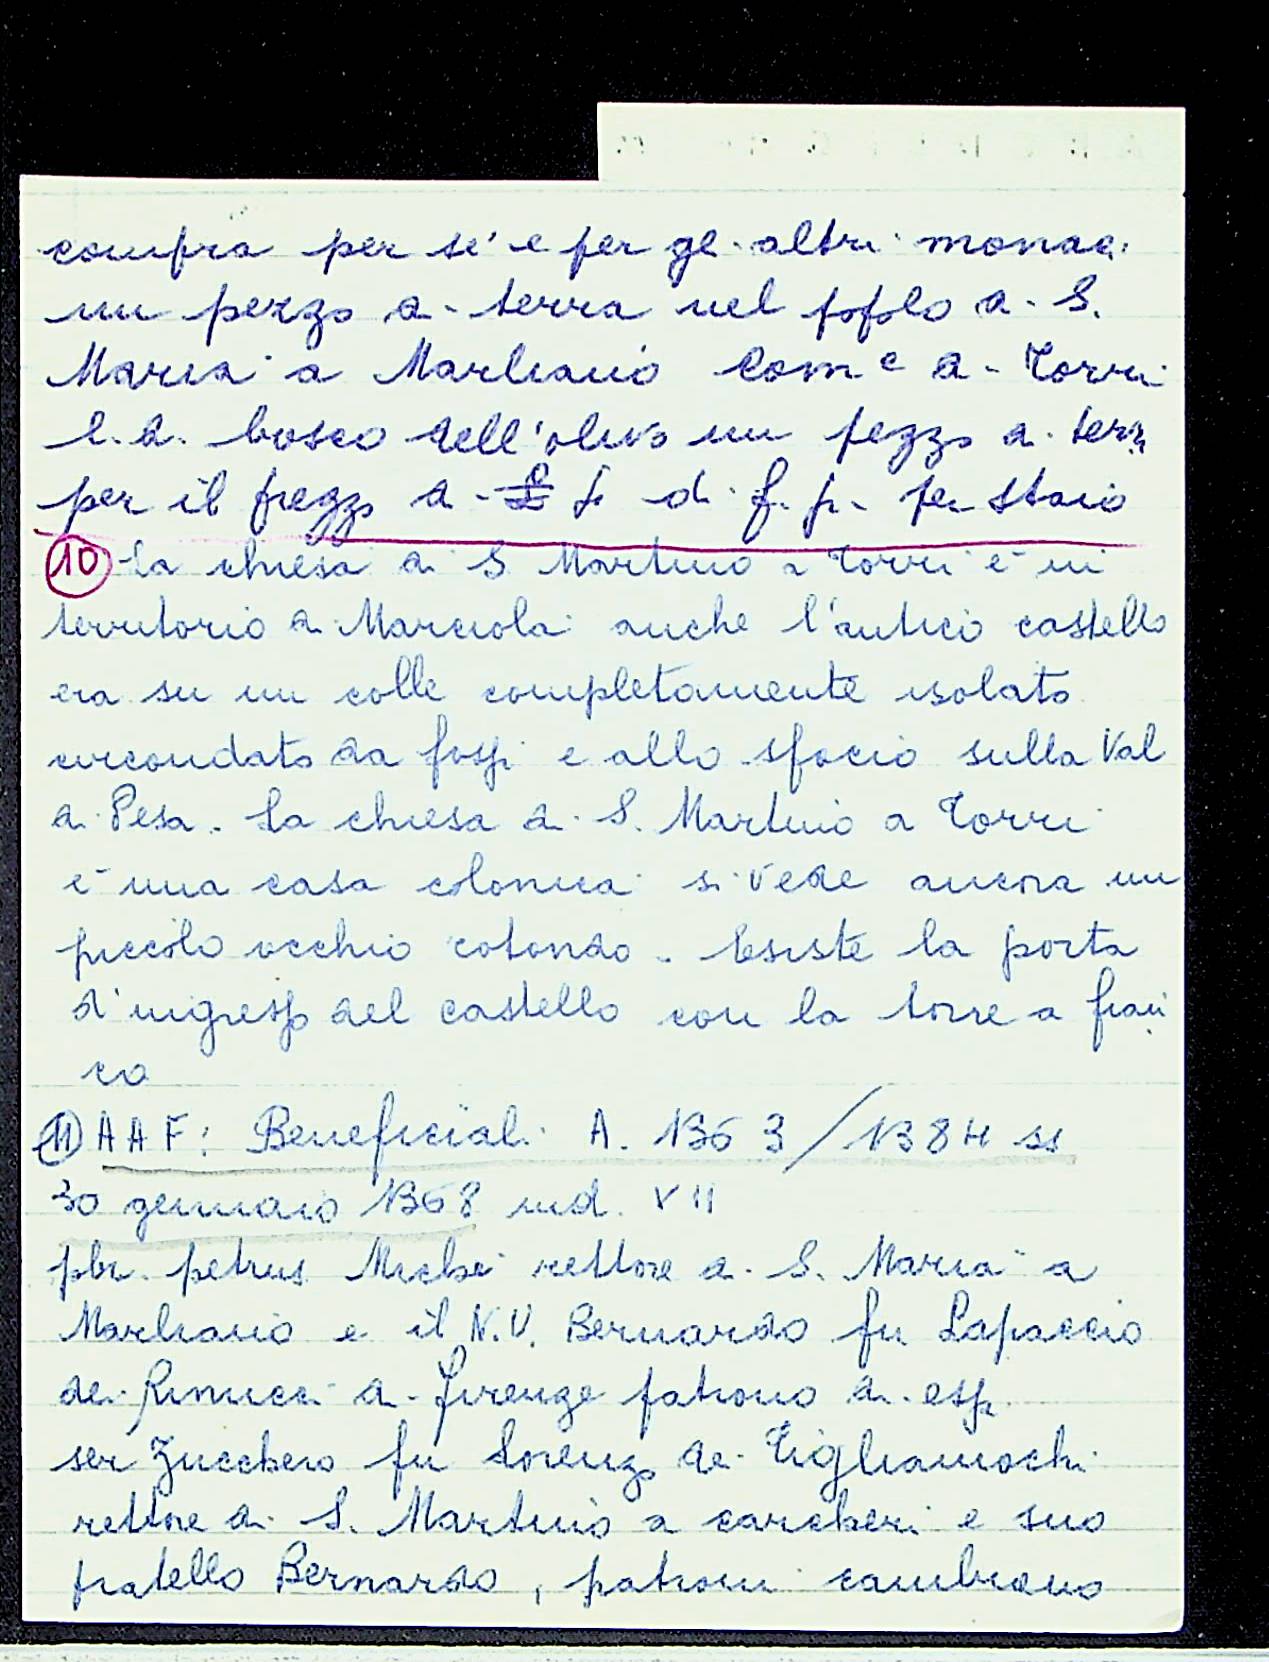 compra per sé e per gli altri monaci
un pezzo di terra nel popolo di S.
Maria a Marliano Com e di Torri
l. d. bosco dell'olivo un pezzo di terra
per il prezzo di £ di f. p. per staio
10 La chiesa di S Martino a Torri è in
territorio di Marciola anche l'antico castello
era su un colle completamente isolato
circondato da fossi e allo sfocio sulla Val
di Pesa. La chiesa di S. Martino a Torri
è una casa colonica si vede ancora un
piccolo occhio rotondo. Esiste la porta
d'ingresso del castello con la torre a fian
co
11) AAF: Beneficiali A. 1363/1384 ss
30 gennaio 1368 ind. VII
pbr. petrus Michi rettore di S. Maria a
Marliano e il N.V. Bernardo fu Lapaccio
dei Rinucci di Firenze patrono di essa
ser Zucchero fu Lorenzo dei Tigliamochi
rettore di S. Martino a carcheri e suo
fratello Bernardo, patroni cambiano